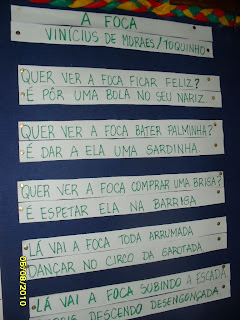 A FOCA
VINÍCIUS DE MORAES/TOQUINHO
QUER VER A FOCA FICAR FELIZ?
É PÔR UMA BOLA NO SEU NARIZ.
QUER VER A FOCA BATER PALMINHA?
É DAR A ELA UMA SARDINHA.
QUER VER A FOCA COMPRAR UMA BRIGA?
É ESPETAR ELA NA BARRIGA
LÁ VAI A FOCA TODA ARRUMADA
DANÇAR NO CIRCO DA GAROTADA
LÁ VAI A FOCA SUBINDO A ESCADA
DESCENDO DESENGONÇADA
05/08/2010